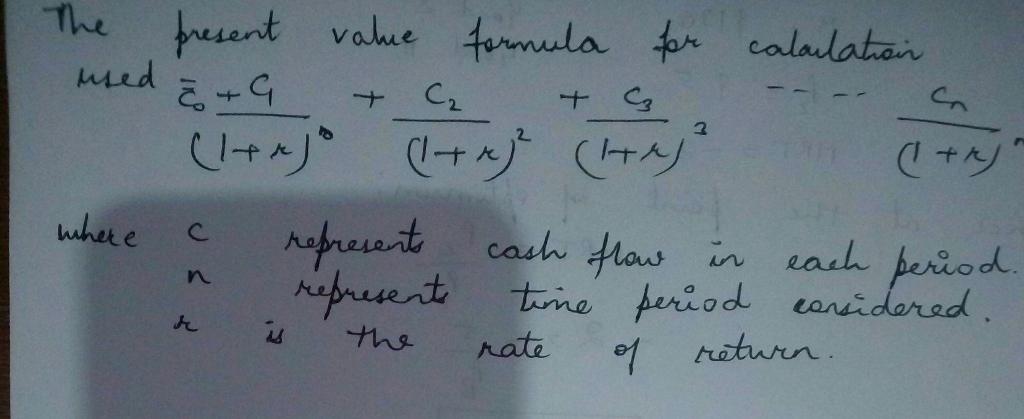 The present value formula for calculation
used C̄₀ + C₁/(1+r) + C₂/(1+r)² + C₃/(1+r)³ ----- Cₙ/(1+r)ⁿ
where C represents cash flow in each period.
n represents time period considered.
r is the rate of return.